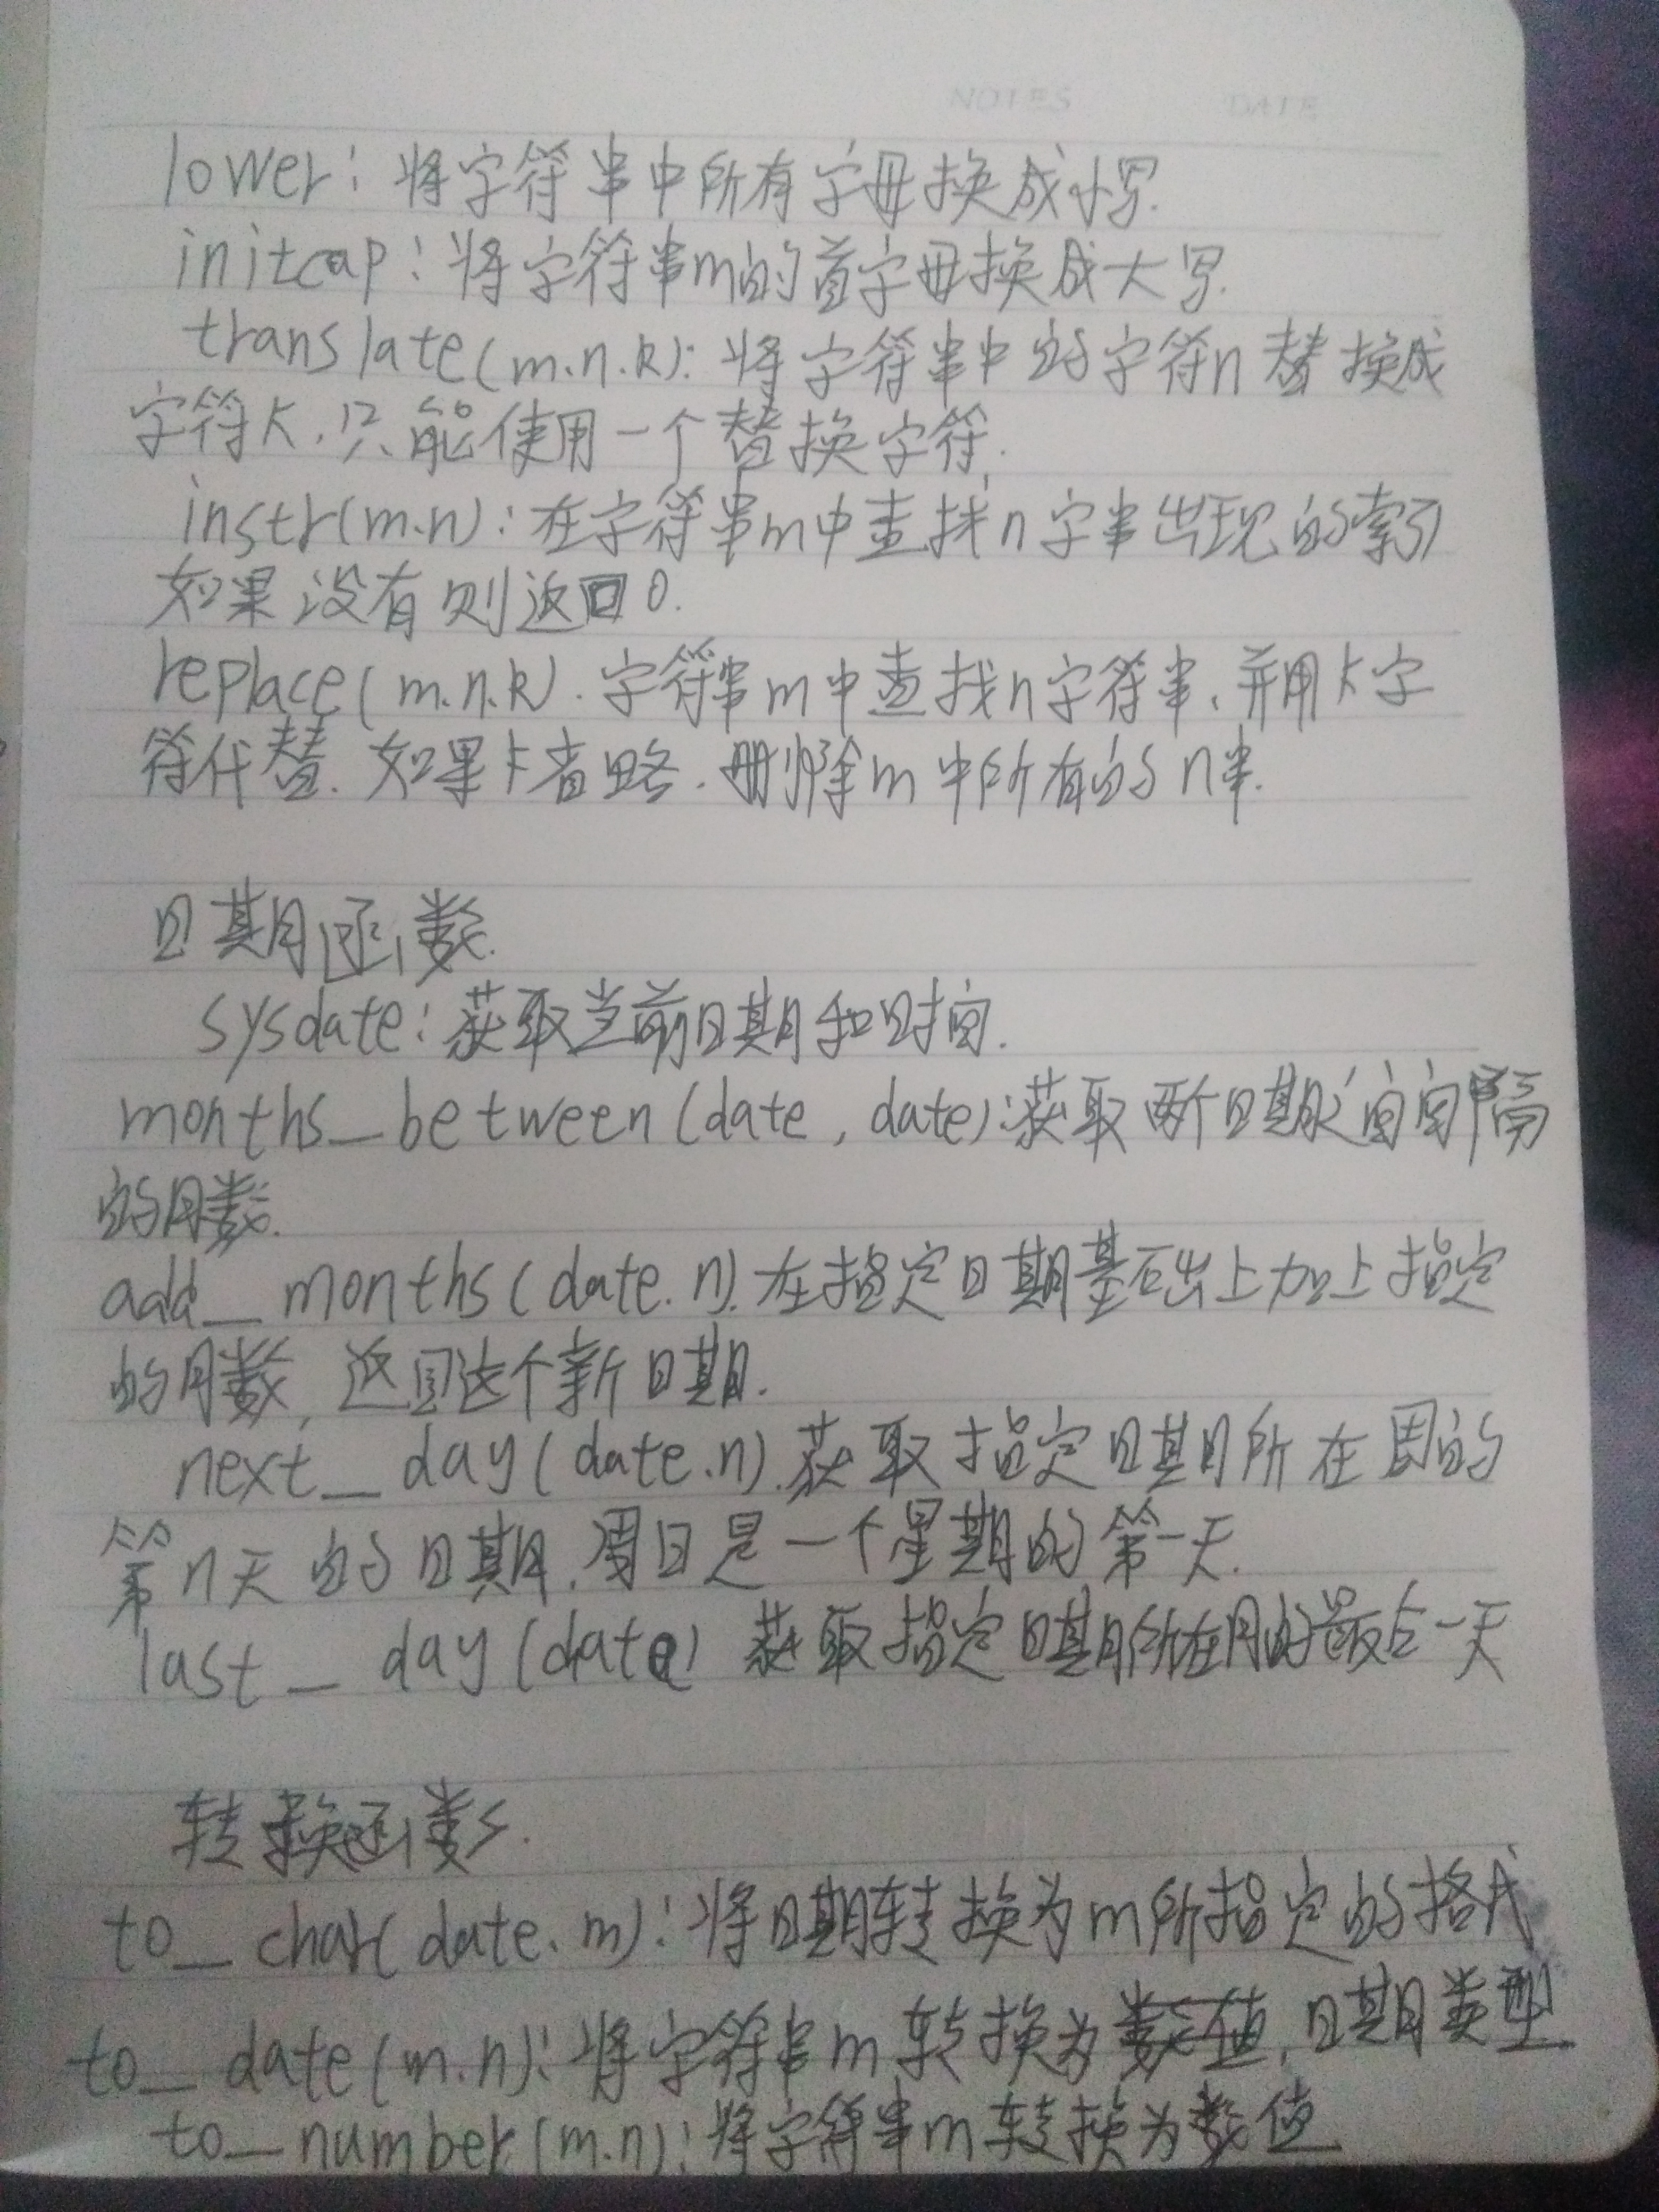 NOTES DATE
lower：将字符串中所有字母换成小写.
initcap：将字符串m的首字母换成大写.
translate(m.n.k)：将字符串中的字符n替换成
字符k.只能使用一个替换字符.
instr(m.n)：在字符串m中查找n字串出现的索引
如果没有则返回0.
replace(m.n.k).字符串m中查找n字符串、并用k字
符代替.如果k省略.删除m中所有的n串.
日期函数.
sysdate：获取当前日期和时间.
months_between(date,date)：获取两个日期之间间隔
的月数.
add_months(date.n).在指定日期基础上加上指定
的月数,返回这个新日期.
next_day(date.n).获取指定日期所在周的
第n天的日期.周日是一个星期的第一天.
last_day(date)获取指定日期所在月的最后一天
转换函数.
to_char(date、m)：将日期转换为m所指定的格式
to_date(m.n)：将字符串m转换为数值,日期类型
to_number(m.n)：将字符串m转换为数值